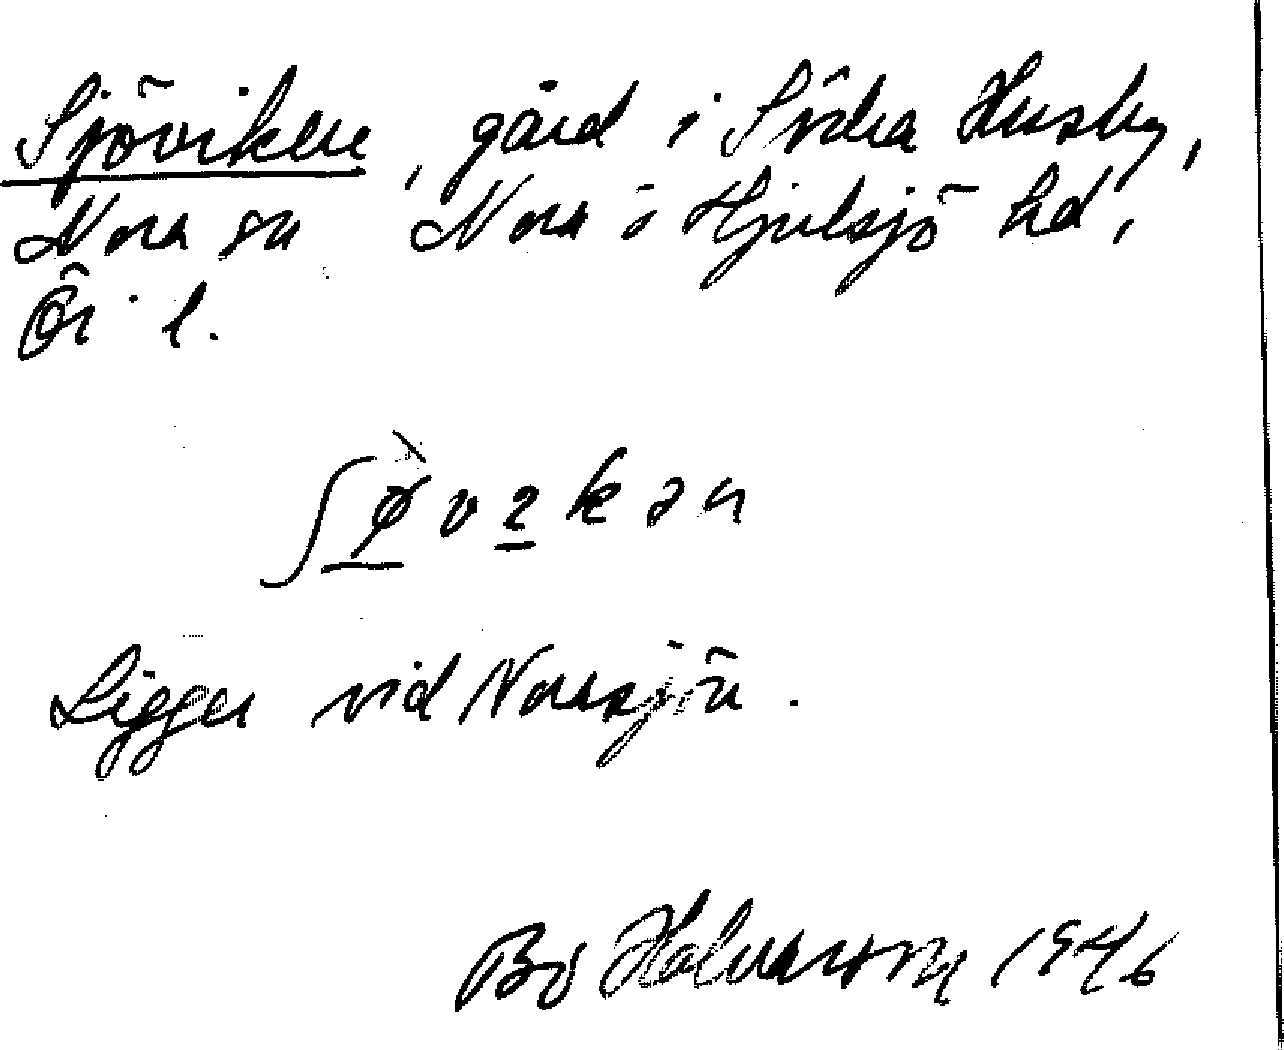 Sjöviken, gård i Södra Husby,
Nora sn Nora o Hjulsjö hd,
Ör l.
ʃø̀vɩkən
Ligger vid Norasjön.
Bo Halvarson 1946